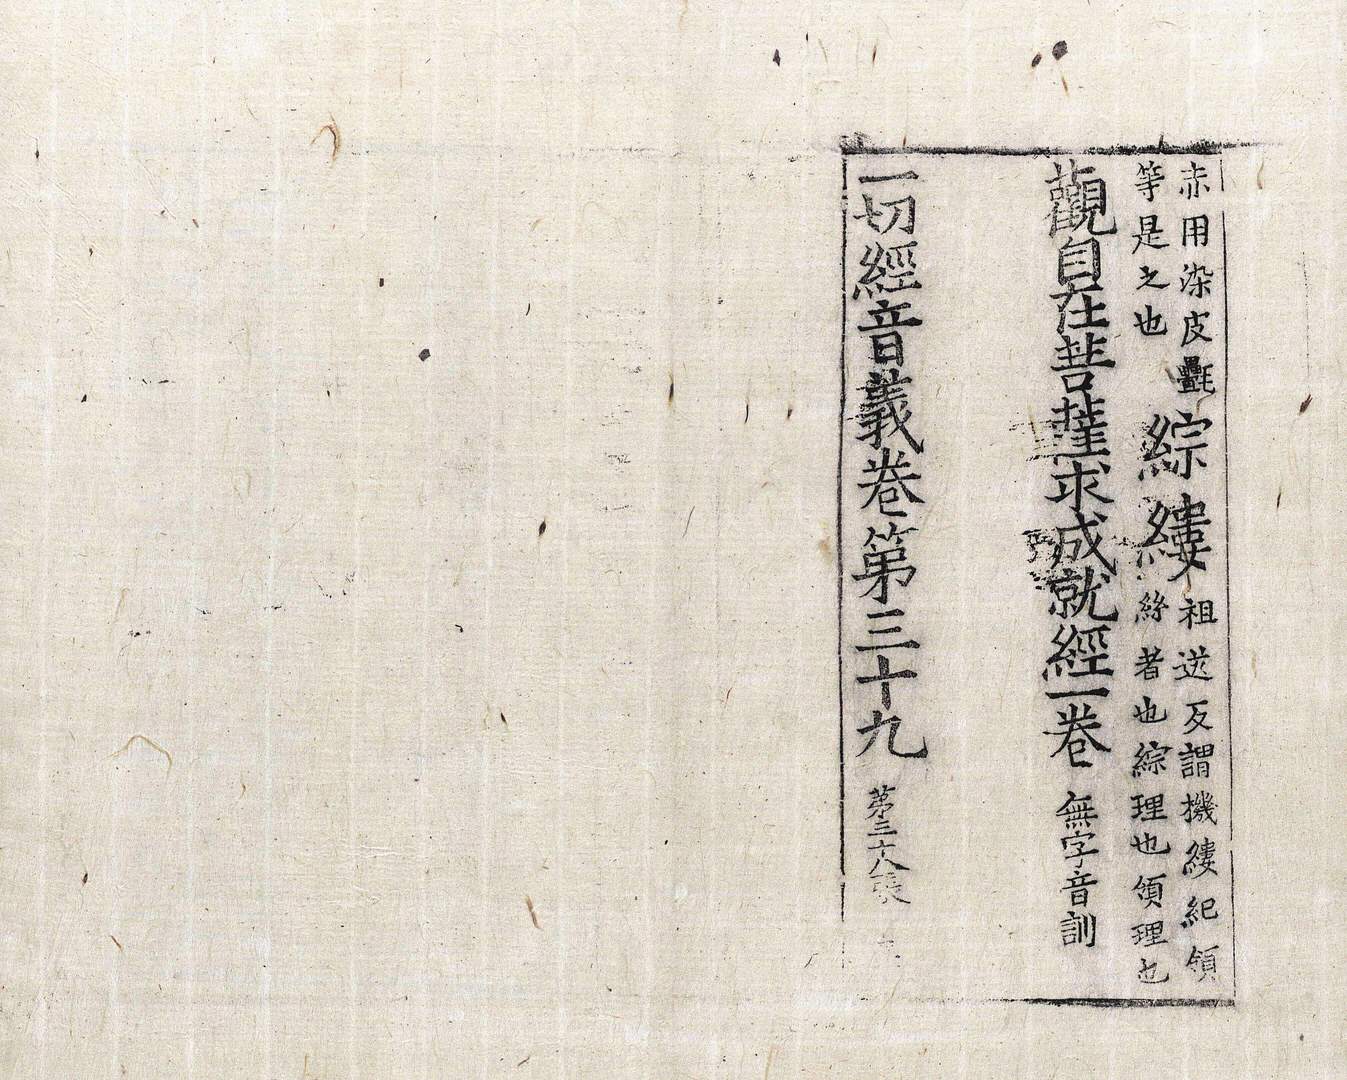 赤用染皮氎
等是之也
綜縷
祖送反謂機縷紀領
絲者也綜理也領理也
觀自在菩薩求成就經一卷 無字音訓
一切經音義卷第三十九 第三十八張